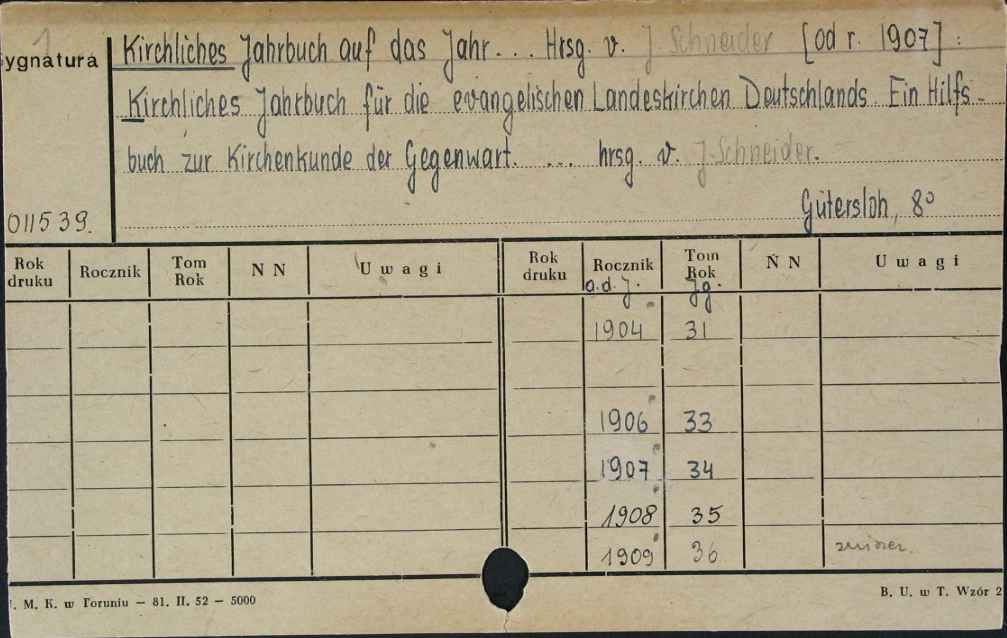 1
ygnatura
Kirchliches Jahrbuch auf das Jahr... Hrsg. v. J. Schneider [od r. 1907] :
Kirchliches Jahrbuch für die evangelischen Landeskirchen Deutschlands. Ein Hilfs-
buch zur Kirchenkunde der Gegenwart. ... hrsg. v. J. Schneider.
Gütersloh, 8°
011539.
Rok druku Rocznik Tom Rok N N Uwagi Rok druku Rocznik Tom Rok N N Uwagi
a.d. J. Jg.
1904 31
1906 33
1907 34
1908 35
1909 36
. M. K. w Toruniu — 81. II. 52 — 5000
B. U. w T. Wzór 2